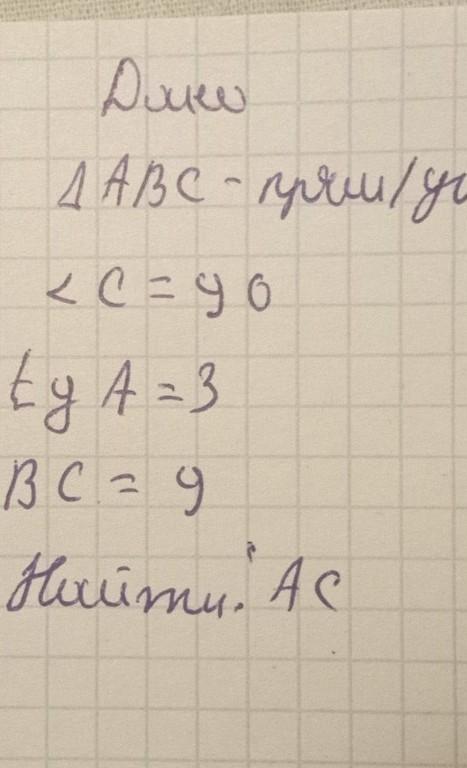 Дано
△ABC - прям/уг
< C = 90
tg A = 3
BC = 9
Найти: AC